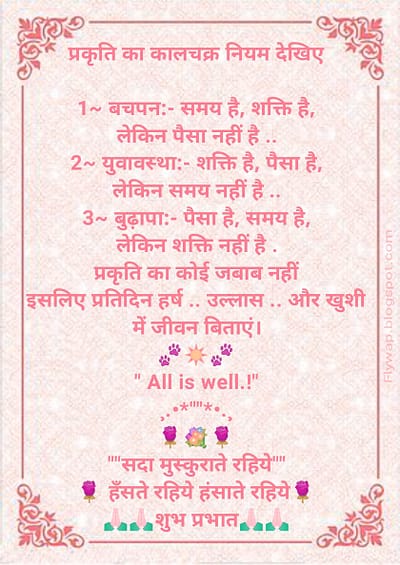 प्रकृति का कालचक्र नियम देखिए
1~ बचपन:- समय है, शक्ति है,
लेकिन पैसा नहीं है ..
2~ युवावस्था:- शक्ति है, पैसा है,
लेकिन समय नहीं है ..
3~ बुढ़ापा:- पैसा है, समय है,
लेकिन शक्ति नहीं है .
प्रकृति का कोई जबाब नहीं
इसलिए प्रतिदिन हर्ष .. उल्लास .. और खुशी
में जीवन बिताएं।
🐾💥🐾
" All is well.!"
¸.•*""*•.¸
🌹💐🌹
""सदा मुस्कुराते रहिये""
🌹 हँसते रहिये हंसाते रहिये🌹
🙏🙏शुभ प्रभात🙏🙏
Flywap.blogspot.com